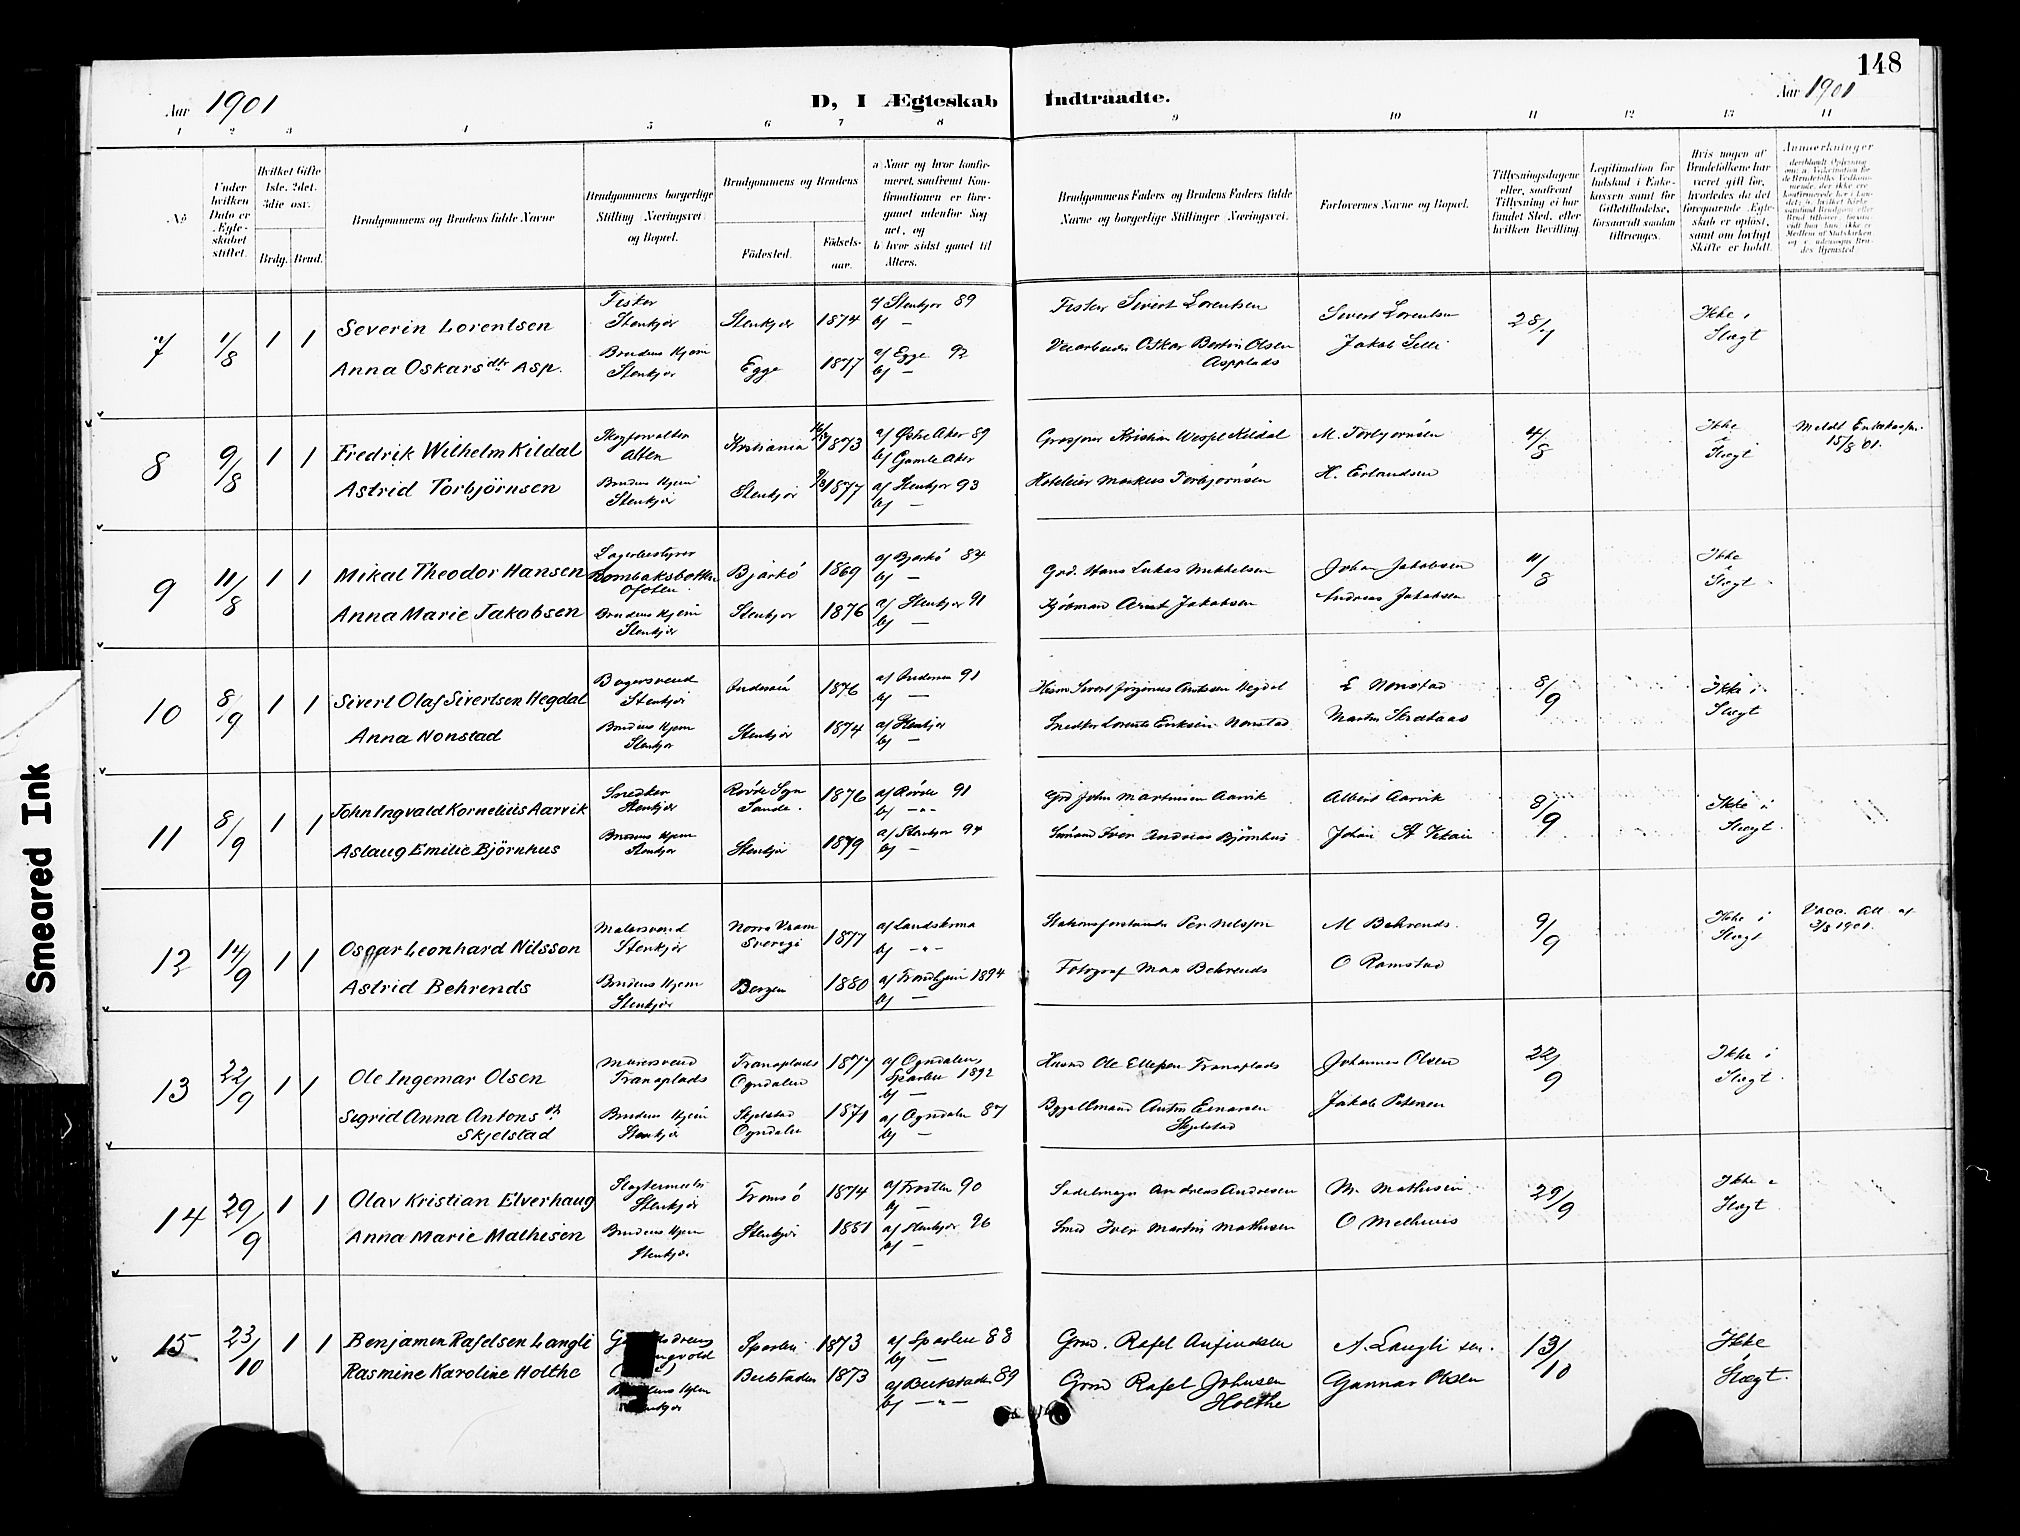 148
Aar 1901
D, I Ægteskab Indtraadte.
Aar 1901
1 2 3 4 5 6 7 8 9 10 11 12 13 14
No.
Under hvilken Dato er Ægteskabet stiftet.
Hvilket Gifte 1ste. 2det. 3die osv.
Brdg. Brud.
Brudgommens og Brudens fulde Navne
Brudgommens borgerlige Stilling Næringsvei og Bopæl.
Brudgommens og Brudens
Födested.
Födselsaar.
a Naar og hvor konfirmeret, saafremt Konfirmationen er foregaaet udenfor Sognet, og
b hvor sidst gaaet til Alters.
Brudgommens Faders og Brudens Faders fulde Navne og borgerlige Stillinger Næringsvei.
Forlovernes Navne og Bopæl.
Tillysningsdagene eller, saafremt Tillysning ei har fundet Sted, efter hvilken Bevilling.
Legitimation for Indskud i Enkekassen samt for Giftetilladelse, forsaavidt saadan tiltrænges.
Hvis nogen af Brudefolkene har været gift før, hvorledes da det foregaaende Ægteskab er opløst, samt om lovligt Skifte er holdt.
Anmerkninger
7 1/8 1 1
Severin Lorentsen
Fisker
Stenkjær
Stenkjær 1874
a) Stenkjær 89
b) —
Fisker Sivert Lorentsen
Sivert Lorentsen
28/7
Ikke i
Slægt
Anna Oskarsdtr Asp.
Brudens Hjem
Stenkjær
Egge 1877
a) Egge 92
b) —
Oskar Olsen
Aspplads
Jakob Selli
8 9/8 1 1
Fredrik Wilhelm Kildal
Skogforvalter
Alten
Kristiania 1873
a) Østre Aker 89
b) Gamle Aker
Kristian Kildal
M. Torbjørnsen
4/8
Ikke
i
Slægt
Meldt Enkekassen
15/8 01.
Astrid Torbjörnsen
Brudens Hjem
Stenkjær
Stenkjær 1877
a) Stenkjær 93
b) —
Hoteleier Markus Torbjørnsen
H. Erlandsen
9 11/8 1 1
Mikal Theodor Hansen
Lagerbestyrer
Rombaksbotten
Ofoten
Bjarkö 1869
a) Bjarkö 84
b) —
Grd. Hans Lukas Mikkelsen
Johan Jakobsen
11/8
Ikke
i
Slægt
Anna Marie Jakobsen
Brudens Hjem
Stenkjær
Stenkjær 1876
a) Stenkjær 91
b) —
Kjöbmand Arnt Jakobsen
Andreas Jakobsen
10 8/9 1 1
Sivert Olaf Sivertsen Hegdal
Bagersvend
Stenkjær
Inderøen 1876
a) Inderøen 91
b) —
Husm Sivert Hegdal
E Nonstad
8/9
Ikke i
Slægt
Anna Nonstad
Brudens Hjem
Stenkjær
Stenkjær 1874
a) Stenkjær
b) —
Snedker Lorents Eriksen Nonstad
Martin
11 8/9 1 1
John Ingvald Kornelius Aarvik
Snedker
Stenkjær
Rovde Sogn
Sande. 1876
a) Rovde 91
b) — " —
Grd John Martinsen Aarvik
Albert Aarvik
8/9
Ikke i
Slægt.
Aslaug Emilie Björnhus
Brudens Hjem
Stenkjær
Stenkjær 1879
a) Stenkjær 94
b) —
Iver Andreas Bjørnhus
Johan
12 14/9 1 1
Oscar Leonhard Nilsson
Malersvend
Stenkjær
Norra Vram
Sverige 1877
a) Landskrona
b) — " —
Stationsforstander Per Nilsson
M Behrends.
9/9
Ikke i
Slægt
Vacc. Att. af
3/8 1901.
Astrid Behrends
Brudens Hjem
Stenkjær
Bergen 1880
a) Trondhjem 1894
b) —
Fotograf Max Behrends
O Ramstad
13 22/9 1 1
Ole Ingemar Olsen
Murersvend
Tranaplads
Tranaplads
Ogndalen 1877
a) Ogndalen,
Sparbu 1892
b) —
Husmd Ole Ellefsen Tranaplads
Johannes Olsen
22/9
Ikke i
Slægt.
Sigrid Anna Antonsdtr
Skjelstad
Brudens Hjem
Stenkjær
Skjelstad
Ogndalen 1871
a) Ogndalen 87
b) —
Anton Einarsen
Skjelstad
Jakob Petersen
14 29/9 1 1
Olav Kristian Elverhaug
Slagtermester
Stenkjær
Tromsö 1874
a) Frosten 90
b) —
Sadelmager Andreas Andresen
M. Mathisen
29/9
Ikke i
Slægt.
Anna Marie Mathisen
Brudens Hjem
Stenkjær
Stenkjær 1881
a) Stenkjær 96
b) —
Smed Iver Martin Mathisen
O Melhuus
15 23/10 1 1
Benjamen Rafelsen Langli
Sparbu 1873
a) Sparbu 88
b) —
Grd. Rafel Anfindsen
A. Langli sen.
13/10
Ikke
i
Slægt.
Rasmine Karoline Holthe
Beitstaden 1873
a) Beitstaden 89
b) — " —
Grd Rafel Johnsen
Holthe
Gunnar Olsen
Smeared Ink